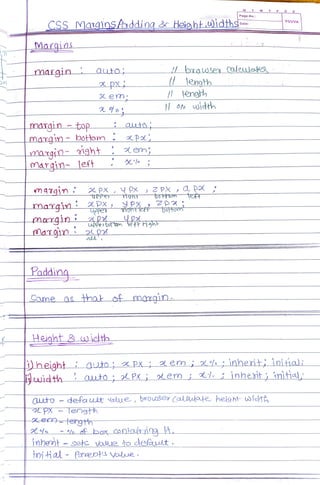 CSS Margins/Padding & Height, Widths
Page No.:
Date:
YOUVA
Margins
margin : auto; // browser calculates
x px; // length
x em; // length
x %; // % width
margin - top : auto;
margin - bottom : x px;
margin - right : x em;
margin - left : x % ;
margin : x px , y px , z px , a px ;
upper right bottom left
margin : x px , y px , z px ;
upper right left bottom
margin : x px y px
upper bottom left right
margin : x px
all .
Padding
Same as that of margin.
Height & width
i) height : auto ; x px ; x em ; x % ; inherit ; initial;
ii) width : auto ; x px ; x em ; x % ; inherit ; initial;
auto - default value , browser calculate height width
x px - length
x em - length
x % - % of box containing it.
inherit - value to default .
initial - value .